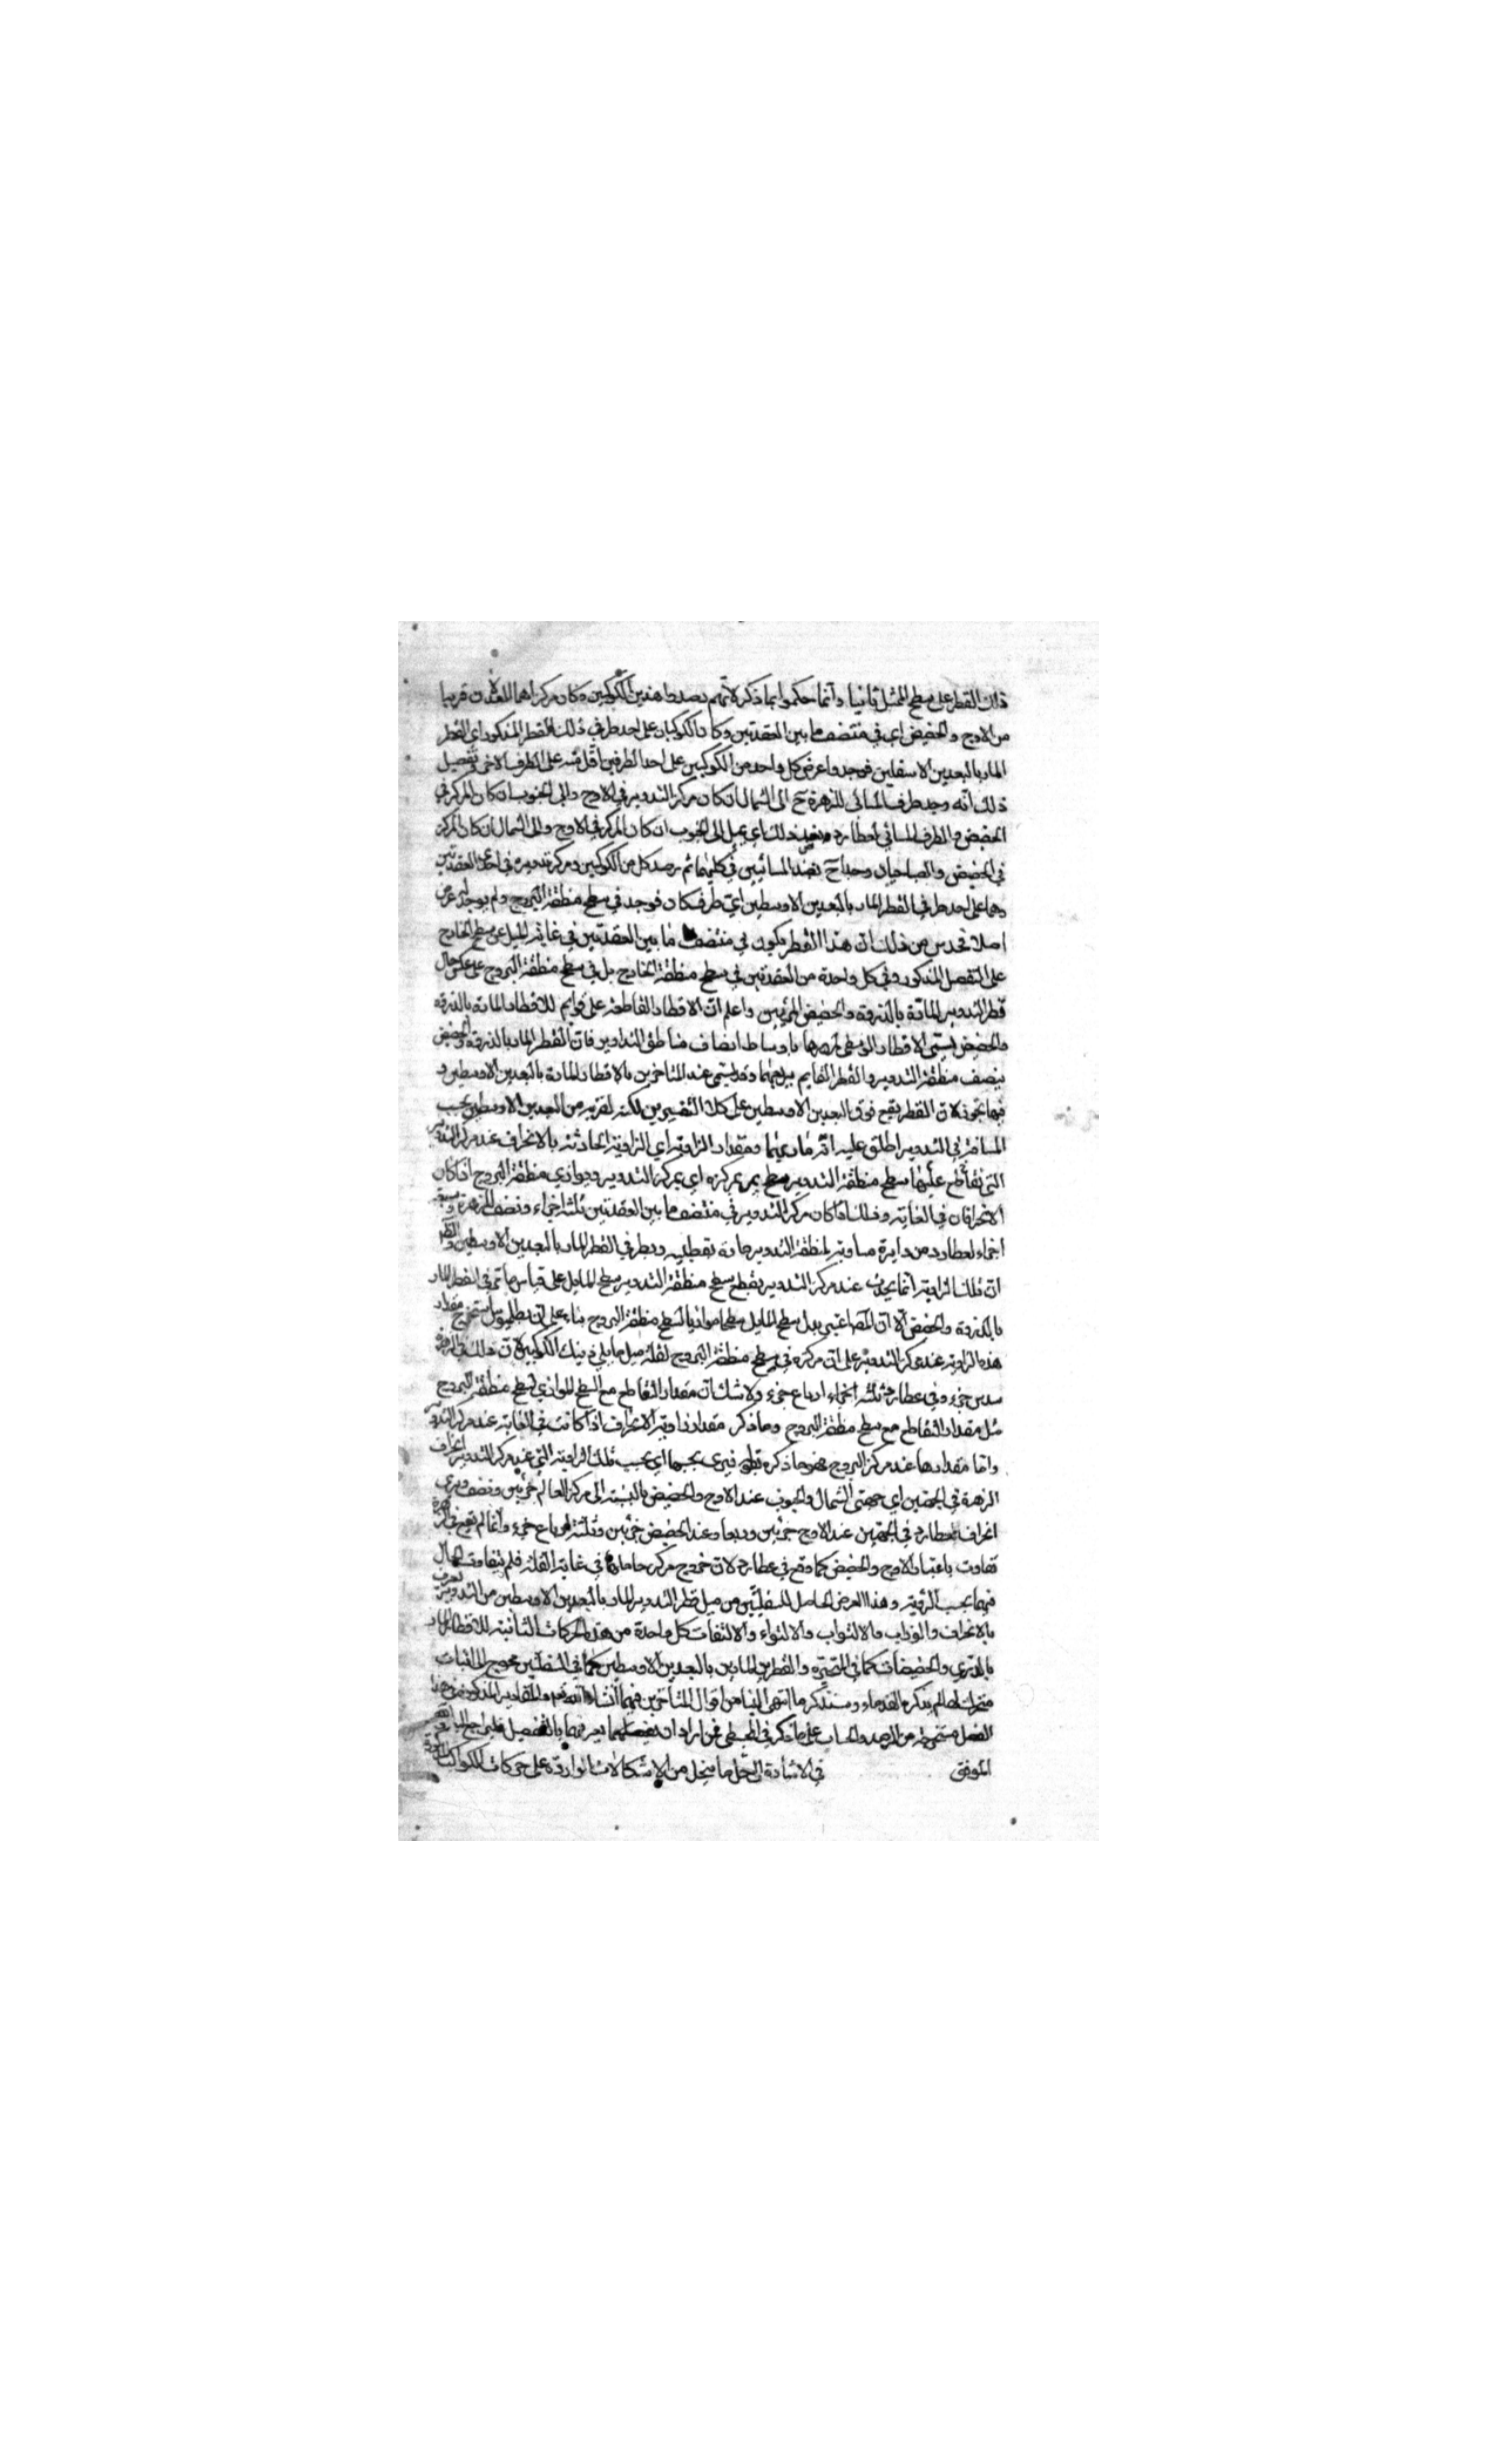 ذلك القطر على سطح الممثل ثانيا وانما حكموا بما ذكر لانهم رصدوا هذين الكوكبين وكان مركزاهما للتدوير قريبا
من الاوج والحضيض اى فى منتصف ما بين العقدتين وكان الكوكبان على احد طرفى ذلك القطر المذكور اى القطر
المار بالبعدين الاسفلين فوجدوا عرض كل واحد من الكوكبين على احد الطرفين اقل منه على الطرف الاخر وتفصيل
ذلك انه وجد طرف المسائى للزهرة ح الى الشمال ان كان مركز التدوير فى الاوج والى الجنوب ان كان المركز فى
الحضيض والطرف المسائى لعطارد بضد ذلك اى يميل الى الجنوب ان كان المركز فى الاوج والى الشمال ان كان المركز
فى الحضيض والصباحيان وجدا ح بضد المسائيين فى كليهما ثم رصد كل من الكوكبين ومركز تدويره فى احدى العقدتين
وهما على احد طرفى القطر المار بالبعدين الاوسطين اى طرف كان فوجد فى سطح منطقة البروج ولم يوجد له عرض
اصلا فحدس من ذلك ان هذا القطر يكون فى منتصف ما بين العقدتين فى غاية الميل عن سطح الخارج
على التفصيل المذكور وفى كل واحدة من العقدتين فى سطح منطقة الخارج بل فى سطح منطقة البروج على عكس حال
قطر التدوير المارة بالذروة والحضيض المرئيين واعلم ان الاقطار القاطعة على قوايم للاقطار المارة بالذروة
والحضيض يسمى الاقطار الوسطى لمرورها باوساط انصاف مناطق التداوير فان القطر المار بالذروة والحضيض
ينصف منطقة التدوير والقطر القايم يربعها وقد يسمى عند المتاخرين بالاقطار المارة بالبعدين الاوسطين و
فيها تجوز لان القطر يقع فوق البعدين الاوسطين على كلا التفسيرين لكنه لقربه من البعدين الاوسطين بحسب
المسافة فى التدوير اطلق عليه انه مار بهما ومقدار الزاوية اى الزاوية الحادثة بالانحراف عند مركز التدوير
التى يتقاطع عليها سطح منطقة التدوير وسطح يمر بمركزه اى بمركز التدوير ويوازى منطقة البروج اذا كان
الانحرافان فى الغاية وذلك اذا كان مركز التدوير فى منتصف ما بين العقدتين ثلثة اجزاء ونصف للزهرة وسبعة
اجزاء لعطارد من دايرة مساوية لمنطقة التدوير مارة بقطبيه وبطرفى القطر المار بالبعدين الاوسطين والظاهر
ان تلك الزاوية انما يحدث عند مركز التدوير بتقاطع سطح منطقة التدوير وسطح المايل على قياس ما مر فى القطر المار
بالذروة والحضيض الا ان المص اعتبر بدل سطح المايل سطحا موازيا لسطح منطقة البروج بناء على ان بطلميوس استخرج مقدار
هذه الزاوية عند مركز التدوير على ان مركزه فى سطح منطقة البروج لقلة ميل مايلى ذينك الكوكبين لان ذلك فى الزهرة
سدس جزء وفى عطارد ثلثة ارباع جزء ولا شك ان مقدار التقاطع مع السطح الموازى لسطح منطقة البروج
مثل مقدار التقاطع مع سطح منطقة البروج وما ذكر مقدار زاوية الانحراف اذا كانت فى الغاية عند مركز التدوير
واما مقدارها عند مركز البروج فهو ما ذكره بقوله فيرى بحسبها اى بحسب تلك الزاوية التى عند مركز التدوير انحراف
الزهرة فى الجهتين اى جهتى الشمال والجنوب عند الاوج والحضيض بالنسبة الى مركز العالم جزئين ونصف ويرى
انحراف عطارد فى الجهتين عند الاوج جزئين وربعا وعند الحضيض جزئين وثلثة ارباع جزء وانما لم يقع فى الزهرة
تفاوت باعتبار الاوج والحضيض كما وقع فى عطارد لان خروج مركز حاملها فى غاية القلة فلم يتفاوت الحال
فيها بحسب الرؤية وهذا العرض الحاصل للسفليين من ميل قطر التدوير المار بالبعدين الاوسطين من التدوير يعرف
بالانحراف والوراب والالتواب والالتواء والالتفات كل واحدة من هذه الحركات الثانية للاقطار المارة
بالذرى والحضيضات كما فى المتحيرة والقطرين المارين بالبعدين الاوسطين كما فى السفليين محوج الى اثبات
متحركات لها لم يذكره القدماء وسنذكر ما انتهى الينا من اقوال المتاخرين فيها ان شاء الله تعم والمقادير المذكورة فى هذا
الفصل مستخرجة من الرصد والحساب على ما ذكر فى المجسطى فمن اراد ان يعرفها بالتفصيل فليراجع اليه
الموفق فى الاشارة الى حل ما ينحل من الاشكالات الواردة على حركات الكواكب